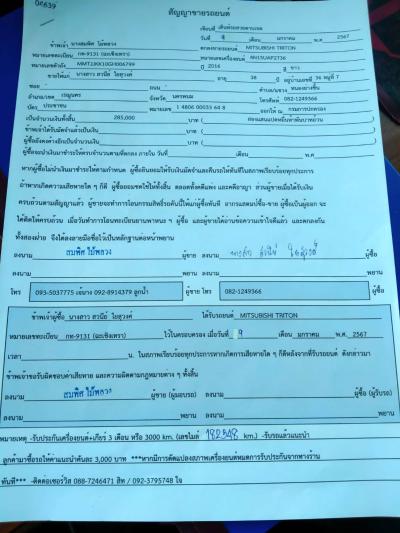 00639
สัญญาขายรถยนต์
เขียนที่ เต็นท์รถสวยตาแขก
วันที่ 9 เดือน มกราคม พ.ศ. 2567
ข้าพเจ้า นายสมพิศ ไม้พลวง ตกลงขายรถยนต์ MITSUBISHI TRITON
หมายเลขทะเบียน กท-9131 (ฉะเชิงเทรา) หมายเลขเครื่องยนต์ 4N15UAF2736
หมายเลขตัวถัง MMTJJKK10GH006799 ปี 2016 สี ขาว
ขายให้แก่ นางสาว สวนีย์ ไชสุวงค์ อายุ 38 ปี อยู่บ้านเลขที่ 36 หมู่ที่ 7
ซอย - ถนน - ตำบล/แขวง หนองย่างชิ้น
อำเภอ/เขต เรณูนคร จังหวัด นครพนม โทรศัพท์ 082-1249366
บัตร ประชาชน หมายเลข 1 4806 00035 64 8 ออกให้ ณ กรมการปกครอง
เป็นจำนวนเงินทั้งสิ้น 285,000 บาท (สองแสนแปดหมื่นห้าพันบาทถ้วน)
ข้าพเจ้าได้รับมัดจำแล้วเป็นเงิน บาท ( )
ผู้ซื้อยังคงค้างอีกเป็นจำนวนเงิน บาท ( )
ผู้ซื้อจะนำเงินมาชำระให้ครบจำนวนตามที่ตกลง ภายใน วันที่ เดือน พ.ศ.
หากผู้ซื้อไม่นำเงินมาชำระให้ตามกำหนด ผู้ซื้อยินยอมให้ริบเงินมัดจำและคืนรถให้ทันทีในสภาพเรียบร้อยทุกประการ
ถ้าหากเกิดความเสียหายใด ๆ ก็ดี ผู้ซื้อยอมชดใช้ให้ทั้งสิ้น ตลอดทั้งคดีแพ่ง และคดีอาญา ส่วนผู้ขายเมื่อได้รับเงิน
ครบถ้วนตามสัญญาแล้ว ผู้ขายจะทำการโอนกรรมสิทธิ์รถคันนี้ให้แก่ผู้ซื้อทันที อากรแสตมป์ซื้อ-ขาย ผู้ซื้อเป็นผู้ออก จะ
ได้ติดให้ครบถ้วน เมื่อวันทำการโอนทะเบียนยานพาหนะ ฯ ผู้ซื้อ และผู้ขายได้อ่านข้อความเข้าใจดีแล้ว และตกลงกัน
ทั้งสองฝ่าย จึงได้ลงลายมือชื่อไว้เป็นหลักฐานต่อหน้าพยาน
ลงนาม สมพิศ ไม้พลวง ผู้ขาย ลงนาม ผู้ซื้อ
ลงนาม พยาน ลงนาม พยาน
โทร 093-5037775 เจ้นาง 092-8914379 ลูกน้ำ ผู้ขาย โทร 082-1249366 ผู้ซื้อ
ข้าพเจ้าผู้ซื้อ นางสาว สวนีย์ ไชสุวงค์ ได้รับรถยนต์ MITSUBISHI TRITON
หมายเลขทะเบียน กท-9131 (ฉะเชิงเทรา) ไว้ในครอบครอง เมื่อวันที่ 9 เดือน มกราคม พ.ศ. 2567
เวลา น. ในสภาพเรียบร้อยทุกประการหากเกิดการเสียหายใด ๆ ก็ดีหลังจากที่รับรถยนต์ ดังกล่าวมา
ข้าพเจ้าขอรับผิดชอบค่าเสียหาย และความผิดตามกฎหมายต่าง ๆ ทั้งสิ้น
ลงนาม สมพิศ ไม้พลวง ผู้ขาย (ผู้มอบรถ) ลงนาม ผู้ซื้อ (ผู้รับรถ)
ลงนาม พยาน ลงนาม พยาน
หมายเหตุ -รับประกันเครื่องยนต์+เกียร์ 3 เดือน หรือ 3000 km. (เลขไมล์ 182548 km.) -รับรถแล้วแนะนำ
ลูกค้ามาซื้อรถให้ค่าแนะนำคันละ 3,000 บาท ***หากมีการดัดแปลงสภาพเครื่องยนต์หมดการรับประกันจากทางร้าน
ทันที*** -ติดต่อเซอร์วิส 088-7246471 สิท / 092-3795748 ใจ